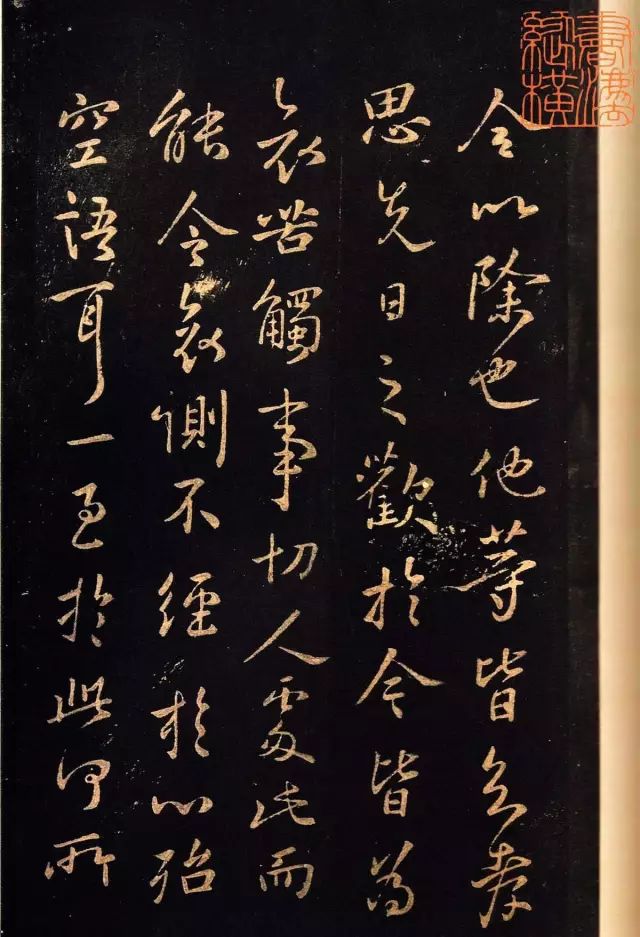 令以除也他等皆至孝
思先日之歡於今皆為
哀苦觸事切人處此而
能令哀惻不經於心殆
空語耳一至於此何所